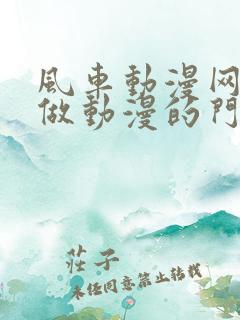 風車動漫网
做動漫的門
莊子
未经同意禁止转载